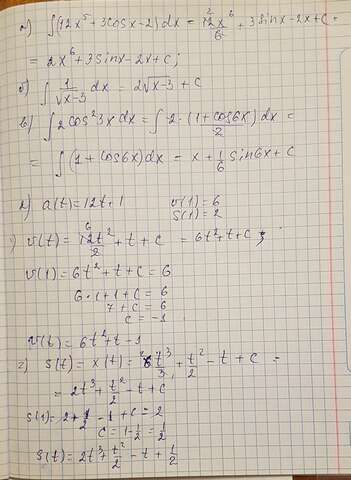 а) ∫(12x⁵+3cosx-2)dx = 12x⁶/6 + 3sinx-2x+C =
= 2x⁶+3sinx-2x+C;
б) ∫ 1/√(x-3) dx = 2√(x-3) + C
в) ∫2cos²3xdx = ∫2·(1+cos6x)/2 dx =
= ∫(1+cos6x)dx = x + 1/6 sin6x+C
2) a(t)=12t+1 v(1)=6
S(1)=2
1) v(t) = 12t²/2 + t + C = 6t²+t+C;
v(1) = 6t²+t+C = 6
6·1+1+C = 6
7+C = 6
C = -1
v(t) = 6t²+t-1
2) S(t) = x(t) = 6t³/3 + t²/2 - t + C =
= 2t³+t²/2 - t+C
S(1) = 2+1/2-1+C = 2
C = 1-1/2 = 1/2
S(t) = 2t³+t²/2 - t + 1/2